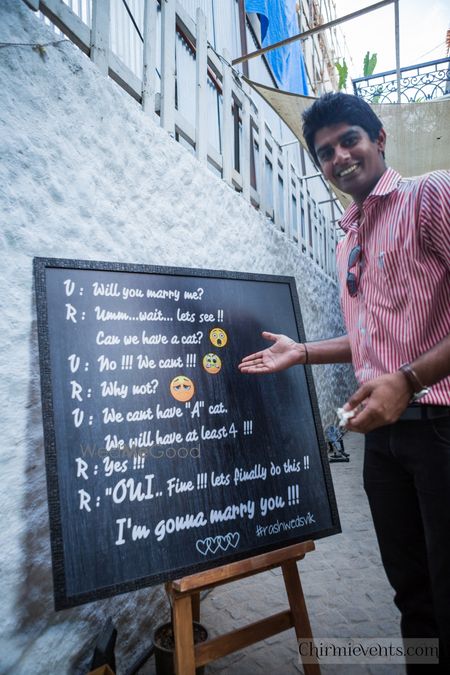 V : Will you marry me?
R : Umm...wait... lets see !!
Can we have a cat? 😲
V : No !!! We cant !!! 😨
R : Why not? 😟
V : We cant have "A" cat.
We will have at least 4 !!!
R : Yes !!!
R : "OUI.. Fine !!! lets finally do this !!
I'm gonna marry you !!!
#rashwedsvik
WedMeGood
Chirmievents.com